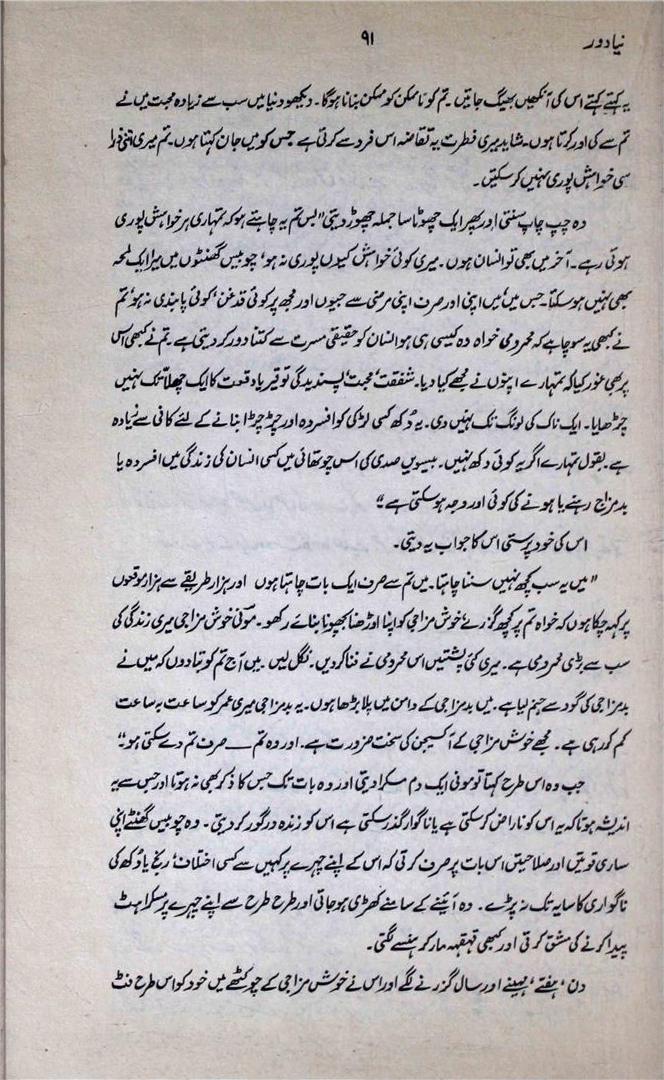 نیا دور
۹۱
یہ کہتے کہتے اس کی آنکھیں بھیگ جاتیں۔ تم کو ناممکن کو ممکن بنانا ہوگا۔ دیکھو دنیا میں سب سے زیادہ محبت میں نے
تم سے کی اور کرتا ہوں۔ شاید میری فطرت یہ تقاضہ اس فرد سے کرتی ہے جس کو میں جان کہتا ہوں۔ تم میری اتنی ذرا
سی خواہش پوری نہیں کر سکتیں۔
وہ چپ چاپ سنتی اور پھر ایک چھوٹا سا جملہ چھوڑ دیتی "بس تم یہ چاہتے ہو کہ تمہاری ہر خواہش پوری
ہوتی رہے۔ آخر میں بھی تو انسان ہوں۔ میری کوئی خواہش کیوں پوری نہ ہو، چوبیس گھنٹوں میں میرا ایک لمحہ
بھی نہیں ہو سکتا۔ جس میں، میں اپنی اور صرف اپنی مرضی سے جیوں اور مجھ پر کوئی قدغن، کوئی پابندی نہ ہو، تم
نے کبھی یہ سوچا ہے کہ محرومی خواہ وہ کیسی ہی ہو انسان کو حقیقی مسرت سے کتنا دور کر دیتی ہے۔ تم نے کبھی اس
پر بھی غور کیا کہ تمہارے اپنوں نے مجھے کیا دیا۔ شفقت، محبت، پسندیدگی توقیر یا وقعت کا ایک چھلّا تک نہیں
چڑھایا۔ ایک ناک کی لونگ تک نہیں دی۔ یہ دُکھ کسی لڑکی کو افسردہ اور چڑچڑا بنانے کے لئے کافی سے زیادہ
ہے۔ بقول تمہارے اگر یہ کوئی دکھ نہیں۔ بیسویں صدی کی اس چوتھائی میں کسی انسان کی زندگی میں افسردہ یا
بد مزاج رہنے یا ہونے کی کوئی اور وجہ ہو سکتی ہے"
اس کی خود پرستی اس کا جواب یہ دیتی۔
"میں یہ سب کچھ نہیں سننا چاہتا۔ میں تم سے صرف ایک بات چاہتا ہوں اور ہزار طریقے سے ہزار موقعوں
پر کہہ چکا ہوں کہ خواہ تم پر کچھ گزرے، خوش مزاجی کو اپنا اوڑھنا بچھونا بنائے رکھو۔ مونی خوش مزاجی میری زندگی کی
سب سے بڑی محرومی ہے۔ میری کئی پشتیں اس محرومی نے فنا کر دیں۔ نگل لیں۔ میں آج تم کو بتا دوں کہ میں نے
بد مزاجی کی گود سے جنم لیا ہے۔ میں بد مزاجی کے دامن میں پلا بڑھا ہوں۔ یہ بد مزاجی میری عمر کو ساعت بہ ساعت
کم کر رہی ہے۔ مجھے خوش مزاجی کے آکسیجن کی سخت ضرورت ہے۔ اور وہ تم — صرف تم دے سکتی ہو۔"
جب وہ اس طرح کہتا تو مونی ایک دم مسکرا دیتی اور وہ بات تک جس کا ذکر بھی نہ ہوتا اور جس سے یہ
اندیشہ ہوتا کہ یہ اس کو ناراض کر سکتی ہے یا ناگوار گذر سکتی ہے اس کو زندہ درگور کر دیتی۔ وہ چوبیس گھنٹے اپنی
ساری قوتیں اور صلاحیتیں اس بات پر صرف کرتی کہ اس کے اپنے چہرے پر کہیں سے کسی اختلاف، رنج یا دُکھ کی
ناگواری کا سایہ تک نہ پڑے۔ وہ آئینے کے سامنے کھڑی ہو جاتی اور طرح طرح سے اپنے چہرے پر مسکراہٹ
پیدا کرنے کی مشق کرتی اور کبھی قہقہہ مار کر ہنسنے لگتی۔
دن، ہفتے، مہینے اور سال گزرنے لگے اور اس نے خوش مزاجی کے چوکٹھے میں خود کو اس طرح فٹ